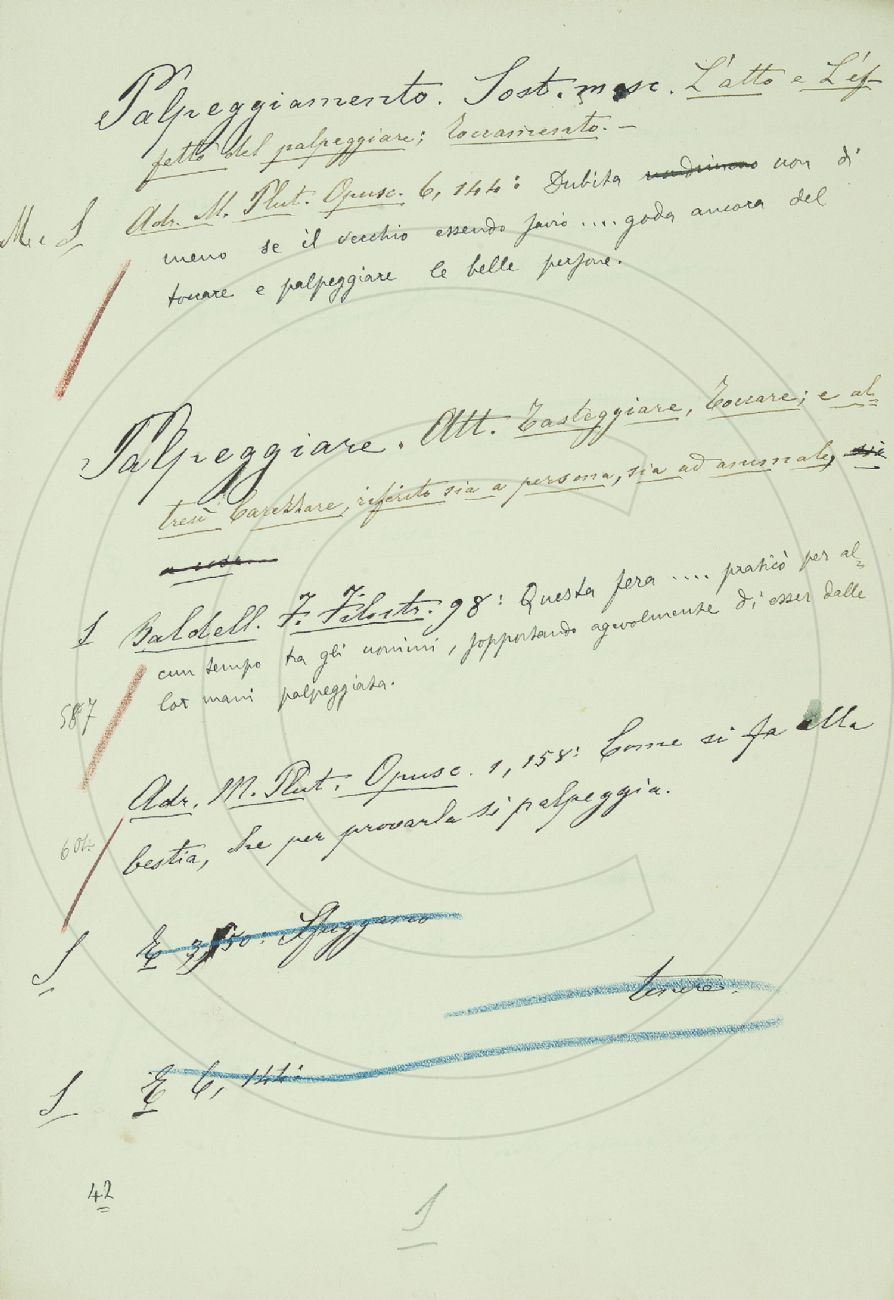 Palpeggiamento. Sost. masc. L'atto e L'ef-
fetto del palpeggiare; Toccamento. —
M. e S Adr. M. Plut. Opusc. 6, 144: Dubita non di
meno se il vecchio essendo savio .... goda ancora del
toccare e palpeggiare le belle persone.
Palpeggiare. Att. Tasteggiare, Toccare; e al=
tresì Carezzare, riferito sia a persona, sia ad animale,
a cosa
S Baldell. F. Filostr. 98: Questa fera .... praticò per al=
587 cun tempo tra gli uomini, sopportando agevolmente di esser dalle
lor mani palpeggiata.
Adr. M. Plut. Opusc. 1, 158: Come si fa alla
bestia, che per provarla si palpeggia.
S E 3, 50: Sfuggano
tenere.
S E 6, 144:
42
S